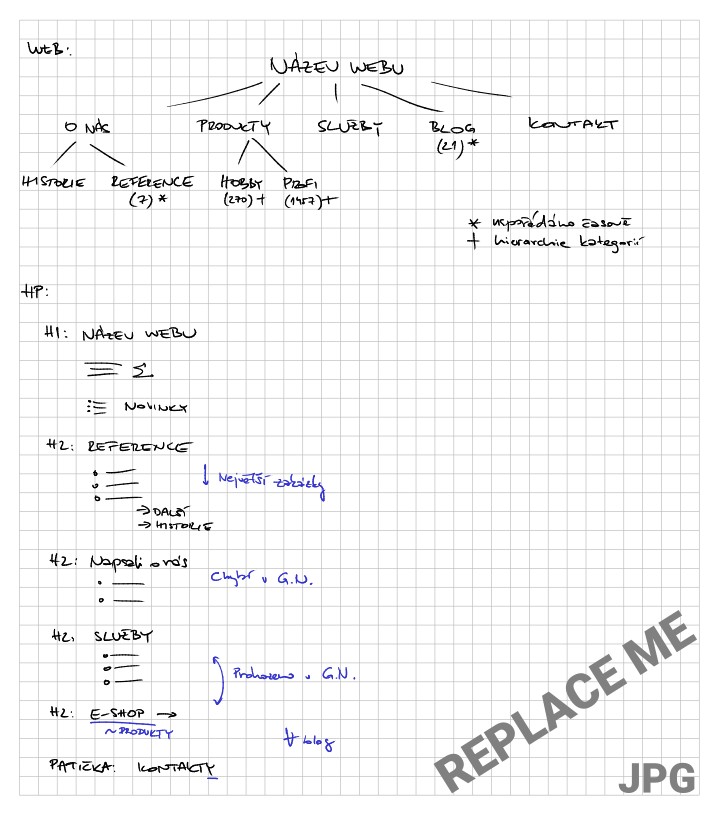 WEB:
NÁZEV WEBU
O NÁS PRODUKTY SLUŽBY BLOG KONTAKT
(21)*
HISTORIE REFERENCE HOBBY PROFI
(7)* (270)+ (1457)+
* uspořádáno časově
+ hierarchie kategorií
HP:
H1: NÁZEV WEBU
Σ
NOVINKY
H2: REFERENCE
↓ Největší zakázky
→ DALŠÍ
→ HISTORIE
H2: Napsali o nás
Chybí v G.N.
H2: SLUŽBY
Prohozeno v G.N.
H2: E-SHOP →
~ PRODUKTY
∀ blog
PATIČKA: KONTAKTY
REPLACE ME
JPG